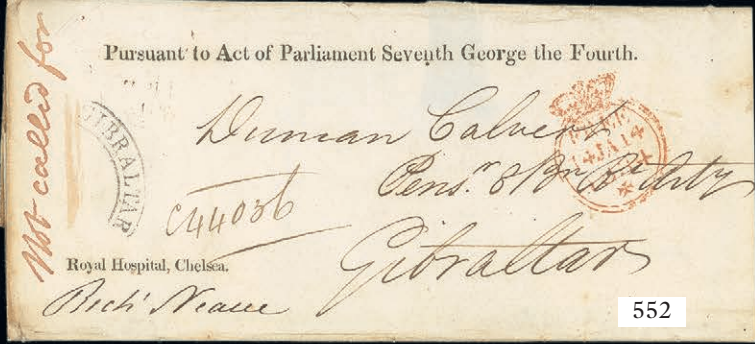 Not called for
Pursuant to Act of Parliament Seventh George the Fourth.
GIBRALTAR
Duncan Calvert
14 JA 14
Pensr 8 Bn Rl Arty
C44036
Gibraltar
Royal Hospital, Chelsea.
Richd Neave
552